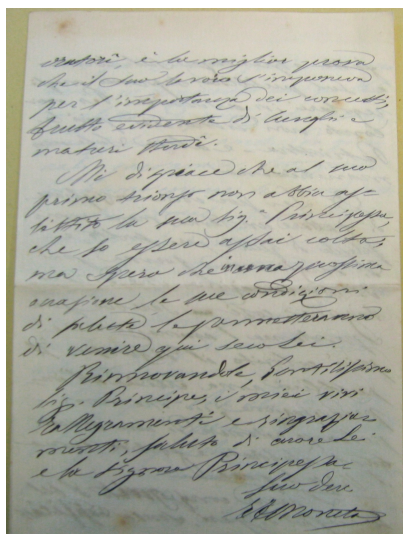 oratori, è la miglior prova
che il suo lavoro s'imponeva
per l'importanza dei concetti,
frutto evidente di lunghi e
maturi studî.
Mi dispiace che al suo
primo trionfo non abbia as-
sistito la sua Sig. Principessa,
che so essere assai colta,
ma spero che prossima
occasione le sue condizioni
di salute le permetteranno
di venire qui seco Lei.
Rinnovandole, Gentilissimo
Sig. Principe, i miei vivi
rallegramenti e ringrazia-
menti, saluto di cuore Lei
e la Signora Principessa
Suo Dev.
E T Moneta